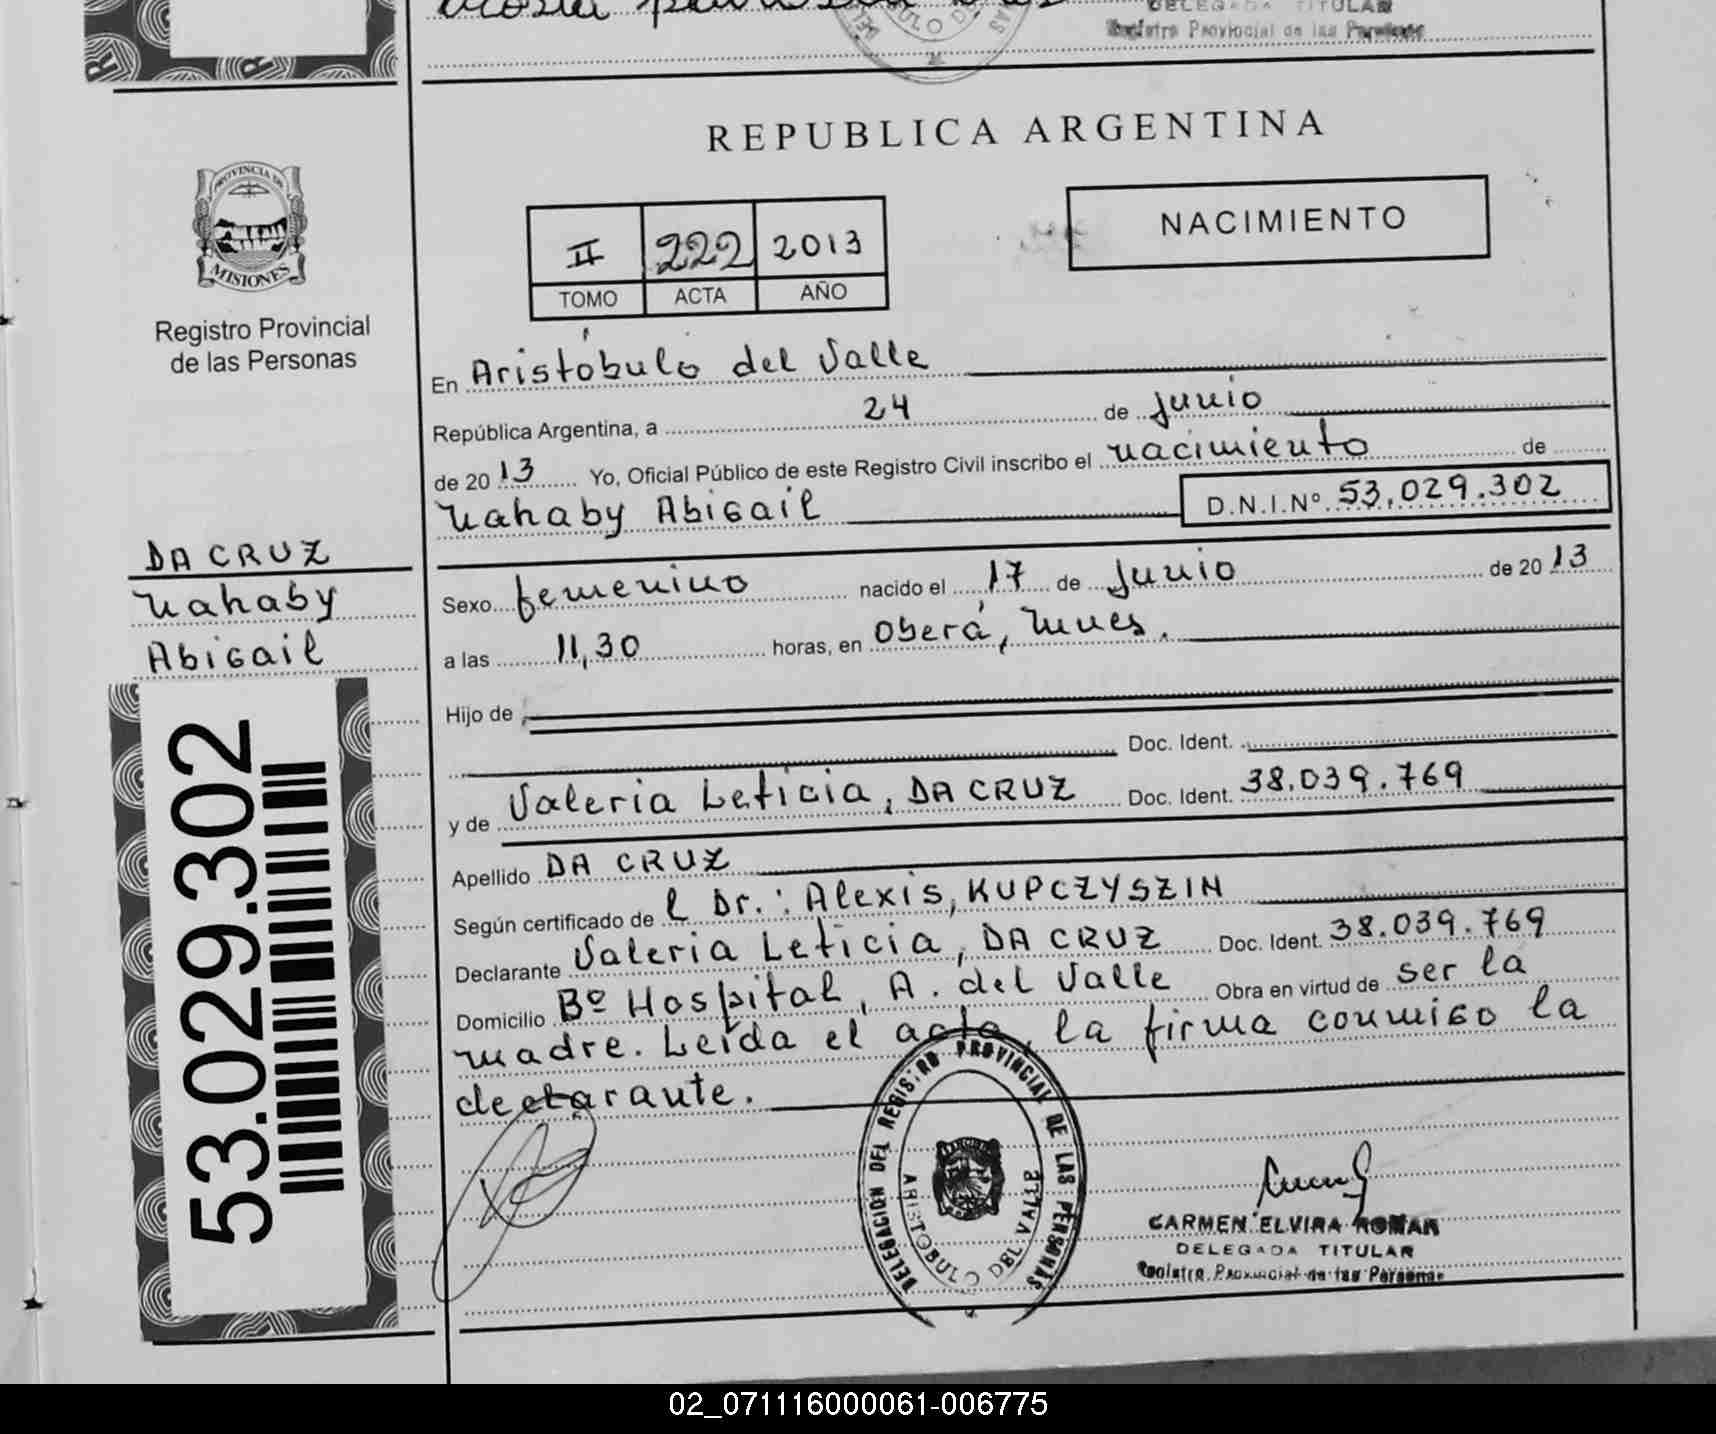 DELEGADA TITULAR
Registro Provincial de las Personas
REPUBLICA ARGENTINA
PROVINCIA DE
MISIONES
Registro Provincial
de las Personas
II 222 2013
TOMO ACTA AÑO
NACIMIENTO
En Aristóbulo del Valle
República Argentina, a 24 de junio
de 2013 Yo, Oficial Público de este Registro Civil inscribo el nacimiento de
Nahaby Abigail D.N.I.Nº 53.029.302
DA CRUZ
Nahaby
Abigail
Sexo femenino nacido el 17 de junio de 2013
a las 11,30 horas, en Oberá, Mnes.
Hijo de
Doc. Ident.
y de Valeria Leticia, DA CRUZ Doc. Ident. 38.039.769
Apellido DA CRUZ
Según certificado de l Dr.: Alexis, KUPCZYSZIN
Declarante Valeria Leticia, DA CRUZ Doc. Ident. 38.039.769
Domicilio Bº Hospital, A. del Valle Obra en virtud de ser la
madre. Leída el acta, la firma conmigo la
declarante.
53.029.302
DELEGACION DEL REGISTRO PROVINCIAL DE LAS PERSONAS
ARISTOBULO DEL VALLE
CARMEN ELVIRA ROMAN
DELEGADA TITULAR
Registro Provincial de las Personas
02_071116000061-006775